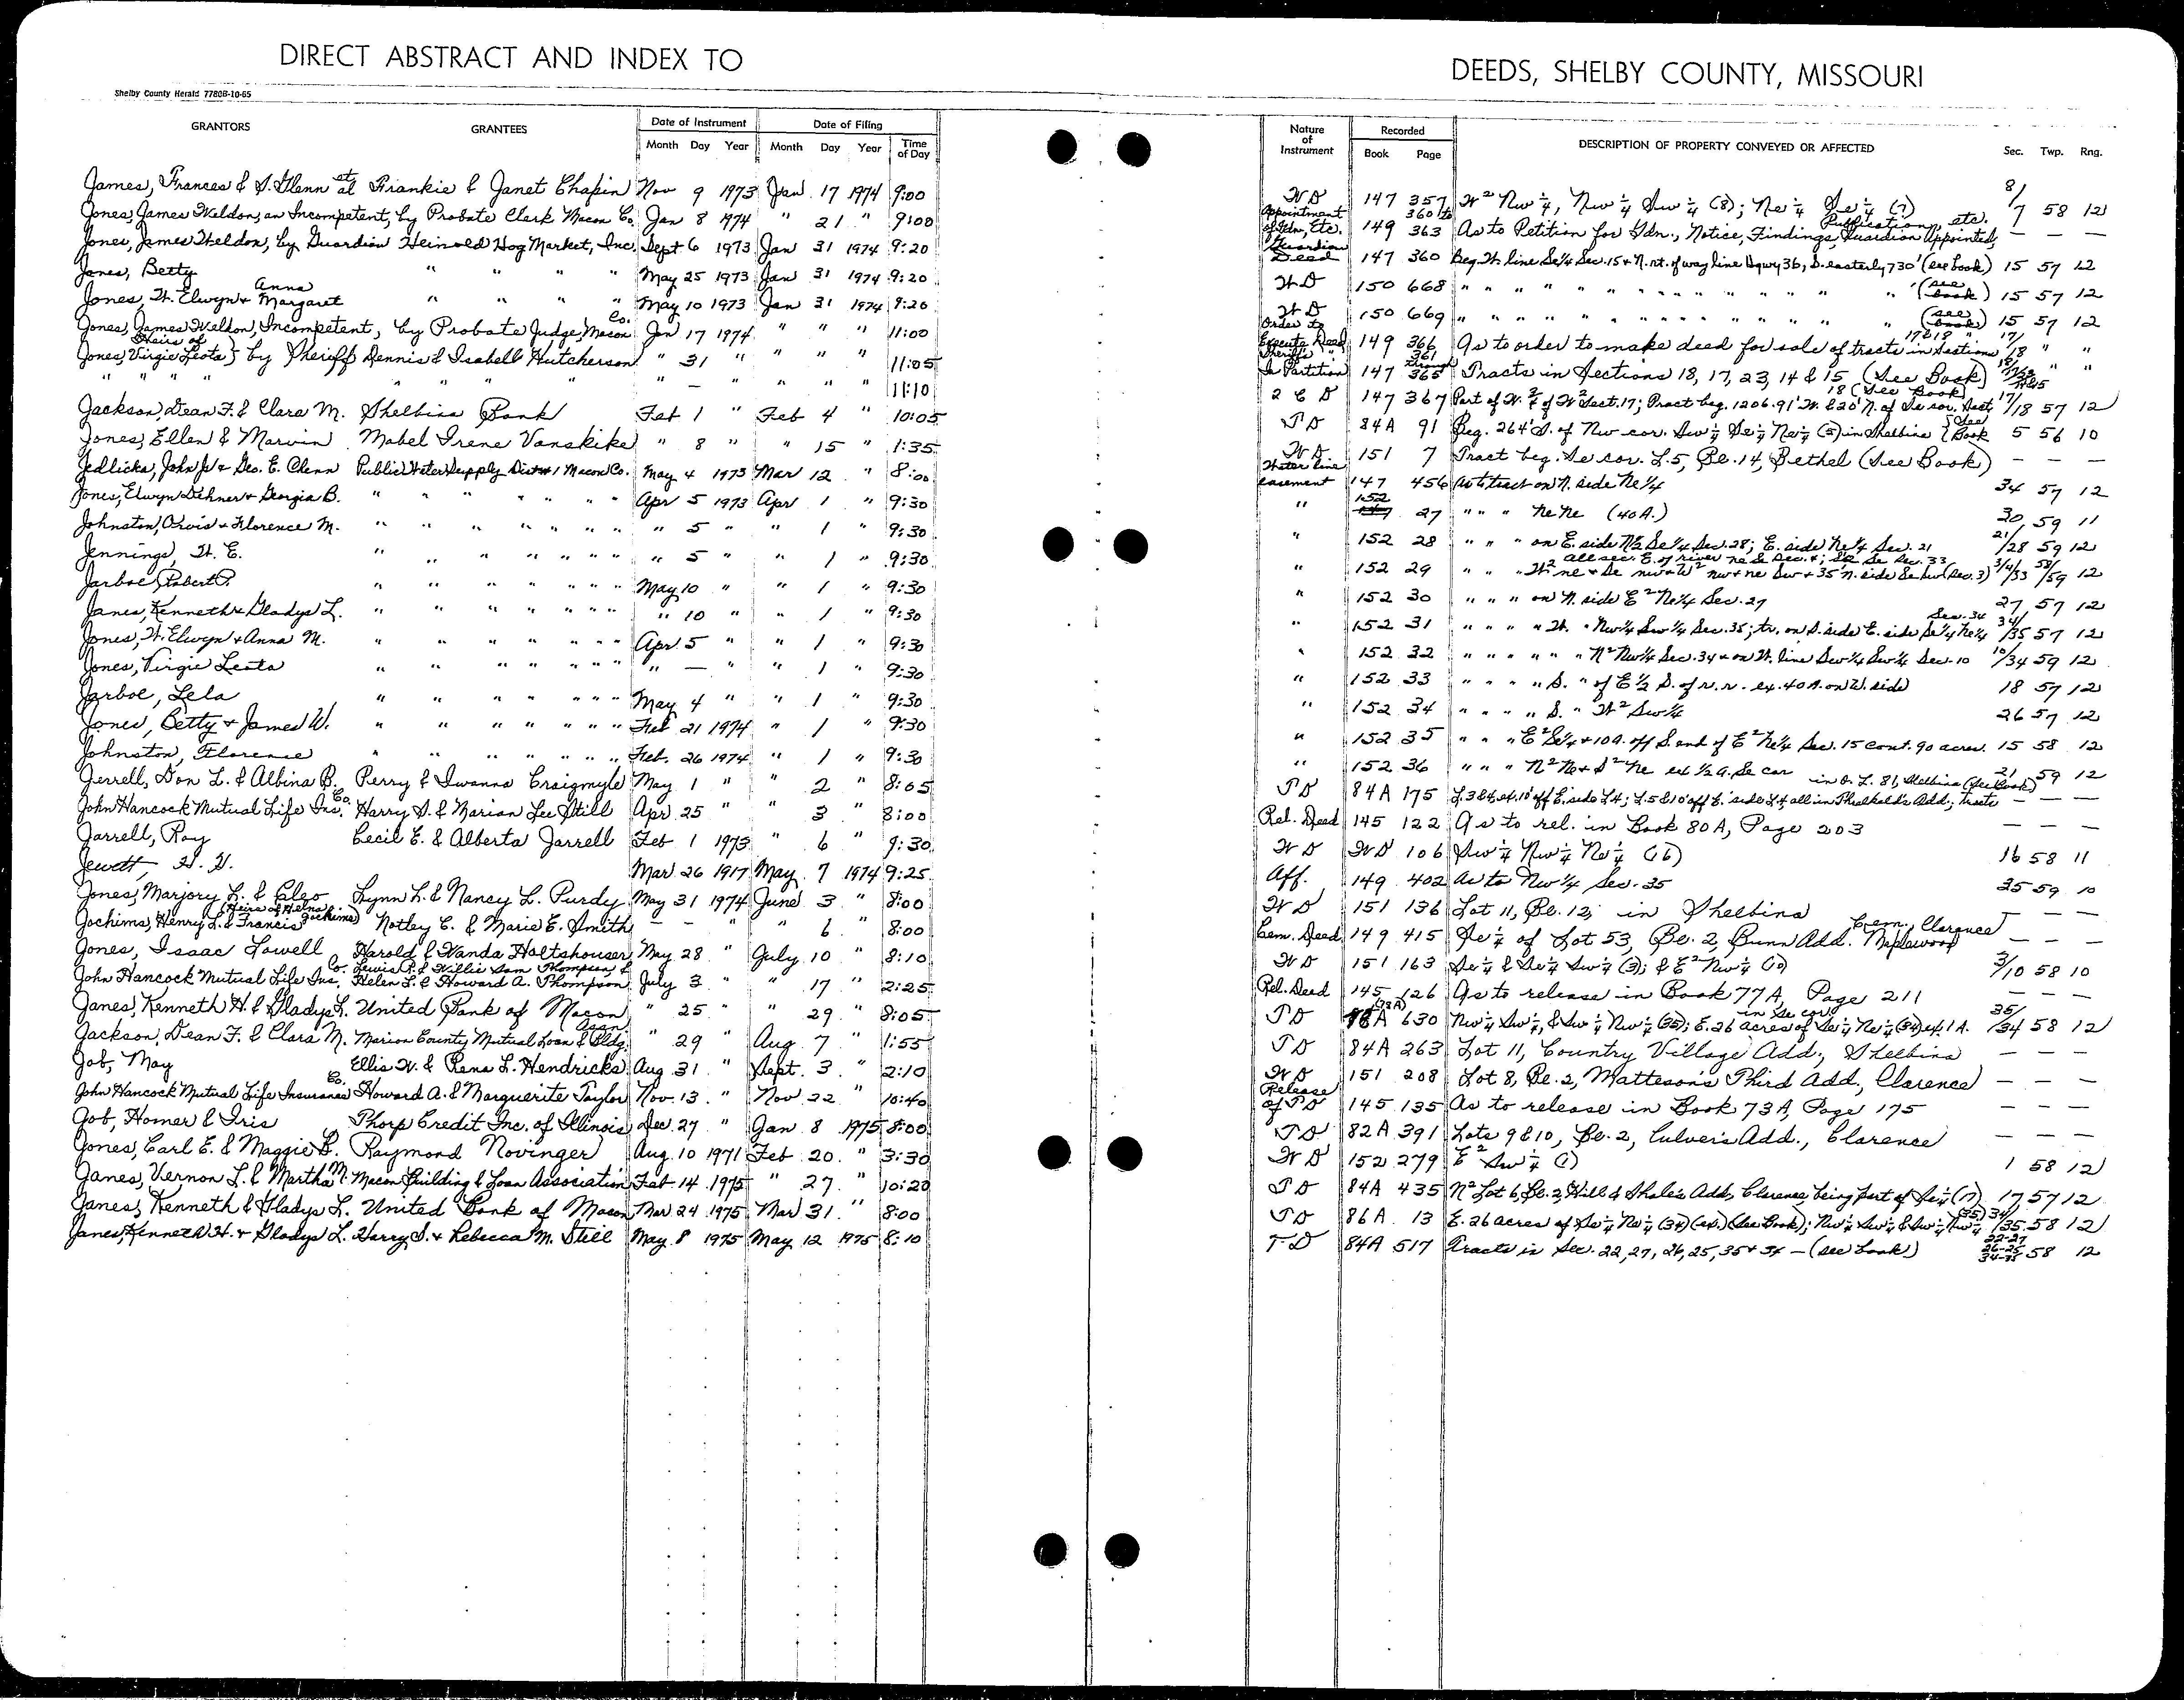 DIRECT ABSTRACT AND INDEX TO
DEEDS, SHELBY COUNTY, MISSOURI
Shelby County Herald 7780B-10-65
GRANTORS GRANTEES Date of Instrument Month Day Year Date of Filing Month Day Year Time of Day
Nature of Instrument Recorded Book Page DESCRIPTION OF PROPERTY CONVEYED OR AFFECTED Sec. Twp. Rng.
James, Frances & S. Glenn et al Frankie & Janet Chapin Nov 9 1973 Jan. 17 1974 9:00
Jones, James Weldon, an Incompetent, by Probate Clerk Macon Co. Jan 8 1974 " 21 " 9:00
Jones, James Weldon, by Guardian Heinold Hog Market, Inc. Sept 6 1973 Jan 31 1974 9:20
Jones, Betty " " " " May 25 1973 Jan 31 1974 9:20
Jones, W. Elwyn & Anna Margaret " " " " May 10 1973 Jan 31 1974 9:20
Jones, James Weldon, Incompetent, by Probate Judge, Macon Co. Jan 17 1974 " " " 11:00
Jones, Virgie Leota } Heirs of by Sheriff Dennis & Isabell Hutcherson " 31 " " " " 11:05
" " " " " " " " " — " " " " 11:10
Jackson, Dean F. & Clara M. Shelbina Bank Feb 1 " Feb 4 " 10:05
Jones, Ellen & Marvin Mabel Irene Vanskike " 8 " " 15 " 1:35
Jedlicka, John Jr & Geo. E. Clenn Public Water Supply Dist #1 Macon Co. May 4 1973 Mar 12 " 8:00
Jones, Elwyn Dehner & Georgia B. " " " " " " Apr 5 1973 Apr 1 " 9:30
Johnston, Orvis & Florence M. " " " " " " " 5 " " 1 " 9:30
Jennings, W. E. " " " " " " " 5 " " 1 " 9:30
Jarboe, Robert P. " " " " " " May 10 " " 1 " 9:30
Janes, Kenneth & Gladys L. " " " " " " " 10 " " 1 " 9:30
Jones, W. Elwyn & Anna M. " " " " " " Apr. 5 " " 1 " 9:30
Jones, Virgie Leota " " " " " " " — " " 1 " 9:30
Jarboe, Lela " " " " " " May 4 " " 1 " 9:30
Jones, Betty & James W. " " " " " " Feb 21 1974 " 1 " 9:30
Johnston, Florence " " " " " " Feb. 26 1974 " 1 " 9:30
Jerrell, Don L. & Albina B. Perry & Iwanna Craigmyle May 1 " " 2 " 8:05
John Hancock Mutual Life Ins. Co. Harry S. & Marian Lee Still Apr 25 " " 3 " 8:00
Jarrell, Roy Cecil E. & Alberta Jarrell Feb 1 1973 " 6 " 9:30
Jewett, H. H. Mar 26 1917 May 7 1974 9:25
Jones, Marjory L. & Cleo Lynn L. & Nancy L. Purdy May 31 1974 June 3 " 8:00
Jochims, Henry L. & Francis (Heirs of Helna Jochims) Notley C. & Marie E. Smith — — " " 6 " 8:00
Jones, Isaac Lowell Harold & Wanda Holtshouser May 28 " July 10 " 8:10
John Hancock Mutual Life Ins. Co. Lewis R. & Willie Sam Thompson & Helen L. & Howard A. Thompson July 3 " " 17 " 2:25
Janes, Kenneth H. & Gladys L. United Bank of Macon " 25 " " 29 " 8:05
Jackson, Dean F. & Clara M. Marion County Mutual Loan & Bldg. Assn. " 29 " Aug. 7 " 1:55
Job, May Ellis W. & Rena L. Hendricks Aug 31 " Sept. 3 " 2:10
John Hancock Mutual Life Insurance Co. Howard A. & Marguerite Taylor Nov. 13 " Nov. 22 " 10:40
Job, Homer & Iris Thorp Credit Inc. of Illinois Dec. 27 " Jan 8 1975 8:00
Jones, Carl E. & Maggie B. Raymond Novinger Aug. 10 1971 Feb 20. " 3:30
Janes, Vernon L. & Martha M. Macon Building & Loan Association Feb. 14 1975 " 27. " 10:20
Janes, Kenneth & Gladys L. United Bank of Macon Mar 24 1975 Mar 31. " 8:00
Janes, Kenneth H. & Gladys L. Harry S. & Rebecca M. Still May 8 1975 May 12 1975 8:10
WD 147 357 W² Nw ¼, Nw ¼ Sw ¼ (8); Ne ¼ Se ¼ (7) 8/7 58 12
Appointment of Gdn, Etc. 149 360 to 363 As to Petition for Gdn., Notice, Findings, Publication, Guardian Appointed, etc. — — —
Guardian Deed 147 360 Beg. W. line Se¼ Sec. 15 & N. rt. of way line Hgwy 36, S. easterly 730' (see book) 15 57 12
WD 150 668 " " " " " " " " " " " " (see book) 15 57 12
WD 150 669 " " " " " " " " " " " " (see book) 15 57 12
Order to Execute Deed 149 366 As to order to make deed for sale of tracts in Sections 17 & 18 17/18 " "
Sheriff's In Partition 147 361 through 365 Tracts in Sections 18, 17, 23, 14 & 15 (See Book) " "
2 C D 147 367 Part of W. ½ of W² Sect. 17; Tract beg. 1206.91' W. & 20' N. of Se cor. Sect. 18 (See Book) 17/18 57 12
TD 84A 91 Beg. 264' S. of Nw cor. Sw ¼ Se ¼ Ne ¼ (5) in Shelbina (See Book 5 56 10
WD 151 7 Tract beg. Se cor. L. 5, Bl. 14, Bethel (See Book) — — —
Water line easement 147 456 As to tract on N. side Ne ¼ 34 57 12
" 152 27 " " " Ne Ne (40 A.) 30, 59 11
" 152 28 " " " on E. side N½ Se ¼ Sec. 28; E. side Ne ¼ Sec. 21 21/28 59 12
" 152 29 " " " W² ne & Se nw & W² nw & ne Sw & 35 N. side Se Sw (Sec. 3) all sec. E. of river ne Se Sec. 4; S½ Se Sec. 33 3/4/33 58/59 12
" 152 30 " " " on N. side E² Ne¼ Sec. 27 27, 57 12
" 152 31 " " " " W. " Nw¼ Sw ¼ Sec. 35; tr. on S. side E. side Se ¼ Ne ¼ Sec. 34 34/35 57 12
" 152 32 " " " " " " N² Nw¼ Sec. 34 & on W. line Sw ¼ Sw ¼ Sec. 10 10/34 59 12
" 152 33 " " " " S. " of E ½ S. of r.r. ex. 40 A. on W. side 18 57 12
" 152 34 " " " " S. " W² Sw ¼ 26 57 12
" 152 35 " " " E² Se ¼ & 10 A. off S. end of E² Ne ¼ Sec. 15 cont. 90 acres. 15 58 12
" 152 36 " " " N² Ne & S² Ne ex ½ a. Se cor 21 59 12
TD 84A 175 L. 3 & 4, ex. 10' off E. side L 4; L. 5 & 10' off E. side L 4 all in Threlkeld's Add.; tracts in O. L. 81, Shelbina (See Book) — — —
Rel. Deed 145 122 As to rel. in Book 80 A, Page 203 — — —
WD WD 106 Sw ¼ Nw ¼ Ne ¼ (16) 16 58 11
Aff. 149 402 As to Nw ¼ Sec. 35 35 59 10
WD 151 136 Lot 11, Bl. 12, in Shelbina — — —
Cem. Deed 149 415 Se ¼ of Lot 53, Bl. 2, Bunn Add. Maplewood Cem., Clarence — — —
WD 151 163 Se ¼ & Se ¼ Sw ¼ (3); & E² Nw ¼ (10) 3/10 58 10
Rel. Deed 145 126 As to release in Book 77 A, Page 211 — — —
TD (78A) 630 Nw ¼ Sw ¼, & Sw ¼ Nw ¼ (35); E. 26 acres of Se ¼ Ne ¼ (34) ex. 1 A. in Se cor 35/34 58 12
TD 84A 263 Lot 11, Country Village Add., Shelbina — — —
WD 151 208 Lot 8, Bl. 2, Matteson's Third Add., Clarence — — —
Release of TD 145 135 As to release in Book 73 A, Page 175 — — —
TD 82A 391 Lots 9 & 10, Bl. 2, Culver's Add., Clarence — — —
WD 152 279 E² Sw ¼ (1) 1 58 12
TD 84A 435 N² Lot 6, Bl. 2, Hill & Shale's Add., Clarence, being part of Se ¼ (17) 17 57 12
TD 86A 13 E. 26 acres of Se ¼ Ne ¼ (34) (ex.) (See Book); Nw ¼ Sw ¼ & Sw ¼ Nw ¼ (35) 34/35 58 12
TD 84A 517 Tracts in Sec. 22, 27, 26, 25, 35 & 34 — (see book) 22-27 26-25 34-35 58 12